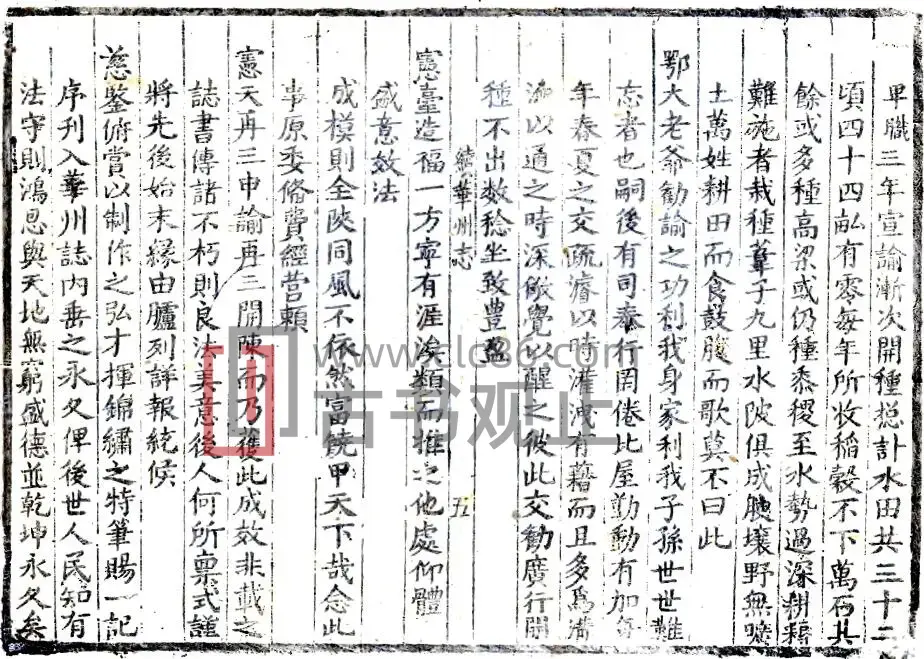 卑職三年宣諭漸次開種總計水田共三十二
頃四十四畝有零每年所收稻穀不下萬石其
餘或多種高梁或仍種黍稷至水勢過深耕耤
難施者栽種葦子九里水陂俱成腴壤野無曠
土萬姓耕田而食鼓腹而歌莫不曰此
鄂大老爺勸諭之功利我身家利我子孫世世難
忘者也嗣後有司奉行罔倦比屋勤動有加每
年春夏之交疏濬以時灌洩有藉而且多為溝
洫以通之時深儆覺以醒之彼此交勸廣行開
種不出數稔坐致豊盈
續華州志
五
憲臺造福一方寧有涯涘類而推之他處仰體
盛意效法
成模則全陝同風不依然富饒甲天下哉念此
事原委俻費經營頼
憲天再三申諭再三開陳而乃獲此成效非載之
誌書傳諸不朽則良法美意後人何所禀式謹
將先後始末緣由臚列詳報統候
慈鑒俯賞以制作之弘才揮錦繡之特筆賜一記
序刊入華州誌內垂之永久俾後世人民知有
法守則鴻恩與天地無窮盛德並乾坤永久矣
www.slc86.com
古书观止